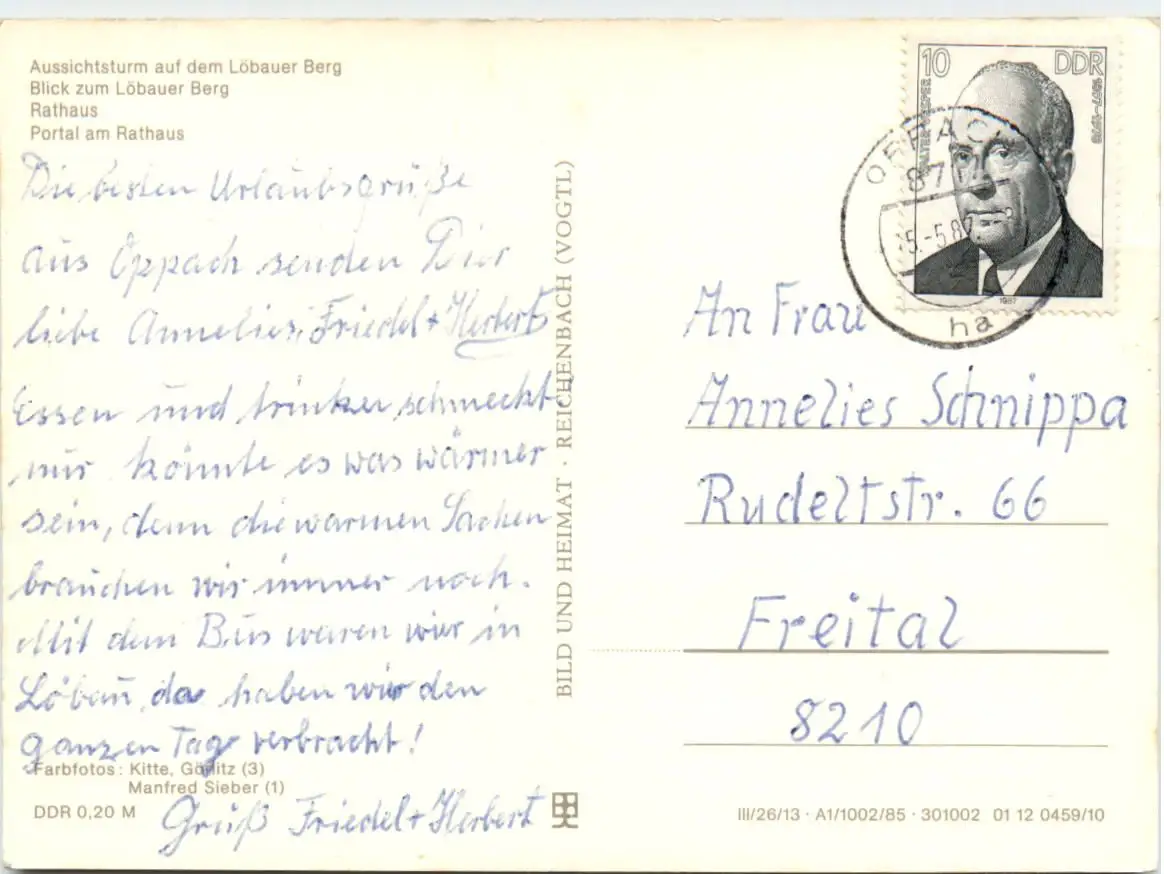 Aussichtsturm auf dem Löbauer Berg
Blick zum Löbauer Berg
Rathaus
Portal am Rathaus
Die besten Urlaubsgrüße
aus Oppach senden Dir
liebe Annelies, Friedel + Herbert
Essen und trinken schmeckt
nur könnte es was wärmer
sein, denn die warmen Sachen
brauchen wir immer noch.
Mit dem Bus waren wir in
Löbau, da haben wir den
ganzen Tag verbracht!
Farbfotos: Kitte, Görlitz (3)
Manfred Sieber (1)
DDR 0,20 M
Gruß Friedel + Herbert
BILD UND HEIMAT · REICHENBACH (VOGTL)
10 DDR
1987
OPPACH
87
5.-5.87
ha
An Frau
Annelies Schnippa
Rudeltstr. 66
Freital
8210
III/26/13 · A1/1002/85 · 301002 01 12 0459/10